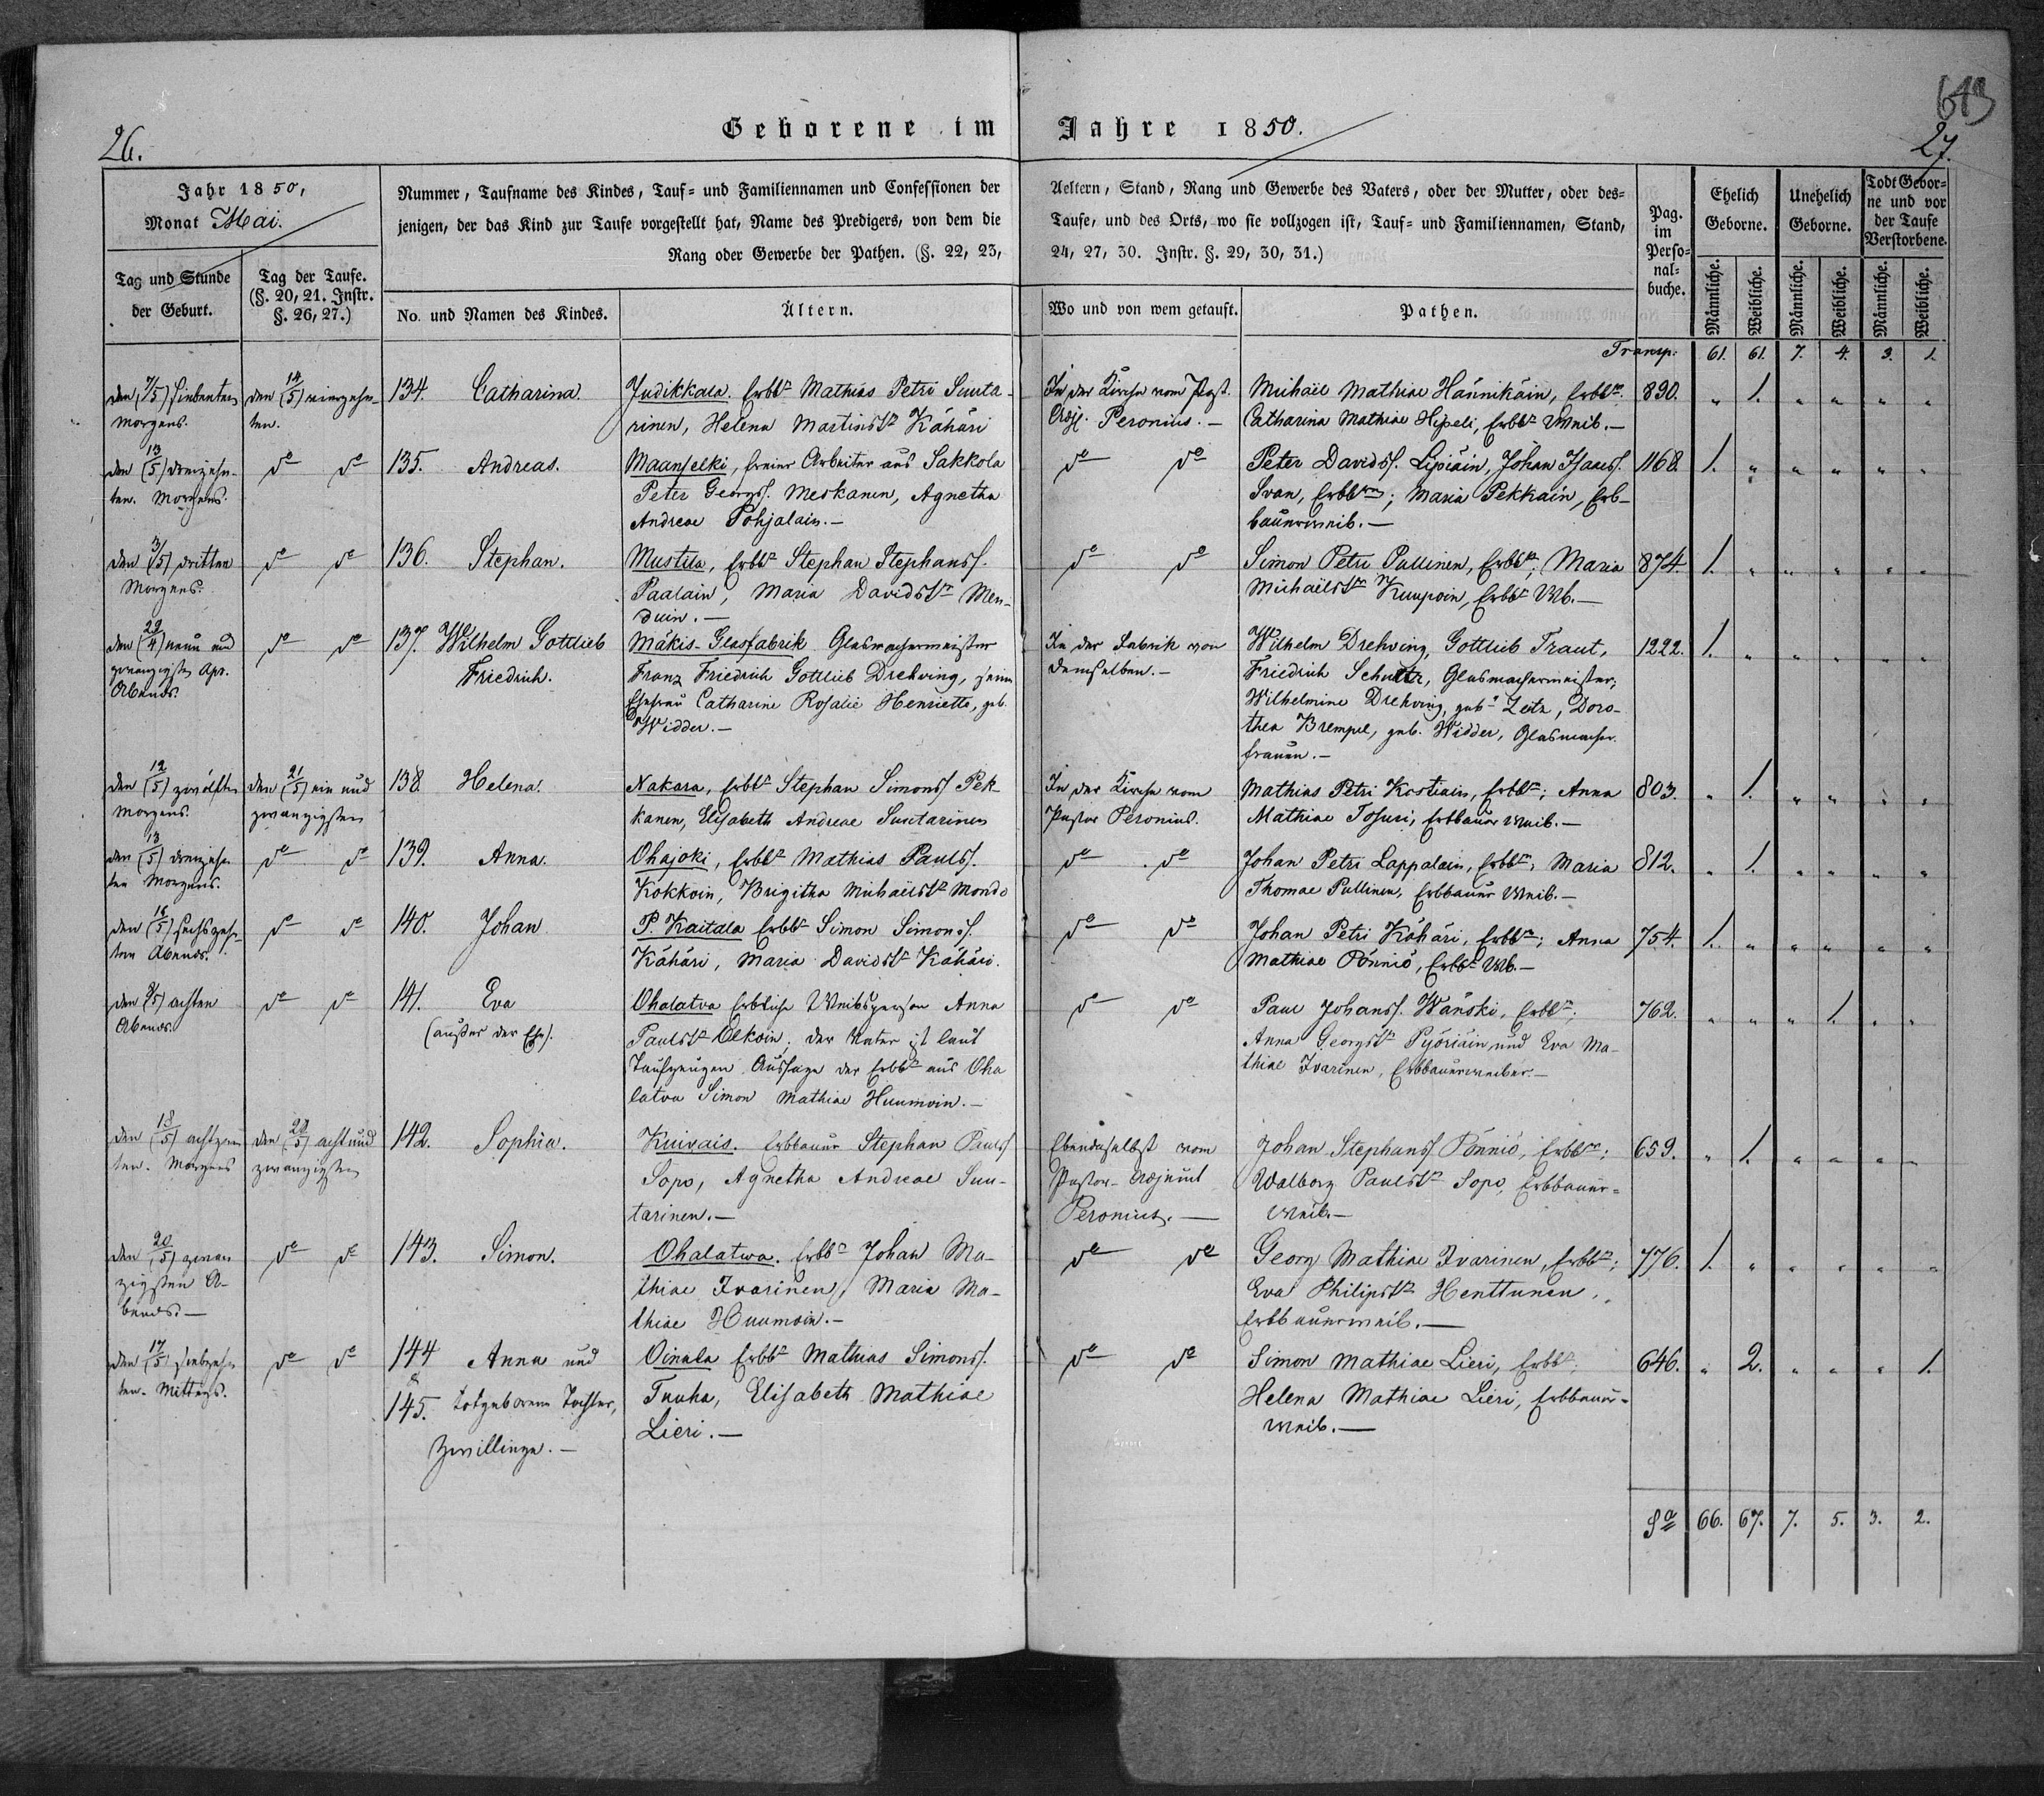 613
26.
Geborene im Jahre 1850.
27.
Jahr 1850,
Monat Mai.
Nummer, Taufname des Kindes, Tauf- und Familiennamen und Confessionen der
jenigen, der das Kind zur Taufe vorgestellt hat, Name des Predigers, von dem die
Rang oder Gewerbe der Pathen. (§. 22, 23,
Aeltern, Stand, Rang und Gewerbe des Vaters, oder der Mutter, oder des-
Taufe, und des Orts, wo sie vollzogen ist, Tauf- und Familiennamen, Stand,
24, 27, 30. Instr. §. 29, 30, 31.)
Pag.
im
Perso-
nal-
buche.
Ehelich
Geborne.
Unehelich
Geborne.
Todt Gebor-
ne und vor
der Taufe
Verstorbene.
Tag und Stunde
der Geburt.
Tag der Taufe.
(§. 20, 21. Instr.
§. 26, 27.)
No. und Namen des Kindes.
Ältern.
Wo und von wem getauft.
Pathen.
Männliche. Weibliche. Männliche. Weibliche. Männliche. Weibliche.
Transp. 61. 61. 7. 4. 3. 1.
den (7/5) siebenten
Morgens.
den (14/5) vierzehn-
ten.
134. Catharina.
Judikkala. Erbbr Mathias Petri Suuta-
rinen, Helena Martinstr Kähäri
In der Kirche vom Past.
Adj. Peronius. —
Michael Mathiae Hännikäin, Erbbr
Catharina Mathiae Hipeli, Erbbr Weib. —
890. „ 1. „ „ „ „
den (13/5) dreizehn-
ten. Morgens.
do do
135. Andreas.
Maanselki, freier Arbeiter aus Sakkola
Peter Georgs. Meskanen, Agnetha
Andreae Pohjalain. —
do do
Peter Davids. Lipiäin, Johan Isaacs.
Ivan, Erbbrn; Maria Pekkain, Erb-
bauerweib. —
1168. 1. „ „ „ „ „
den (3/5) dritten
Morgens.
do do
136. Stephan.
Mustila, Erbbr Stephan Stephans.
Paalain, Maria Davidstr Men-
duin. —
do do
Simon Petri Pullinen, Erbbr; Maria
Michaelstr Kuupoin, Erbbr Wb. —
874. 1. „ „ „ „ „
den (29/4) neun und
zwanzigsten Apr.
Abends.
do do
137. Wilhelm Gottlieb
Friedrich.
Mäkis-Glasfabrik Glasmachermeister
Franz Friedrich Gottlieb Drehving, seine
Ehefrau Catharine Rosalie Henriette, geb.
Widder. —
In der Fabrik von
demselben. —
Wilhelm Drehving, Gottlieb Traut,
Friedrich Schultz, Glasmachermeister;
Wilhelmine Drehving, geb. Zeitz, Doro-
thea Brempel, geb. Widder, Glasmacher
frauen. —
1222. 1. „ „ „ „ „
den (12/5) zwölften
Morgens.
den (21/5) ein und
zwanzigsten
138 Helena.
Nakara, Erbbr Stephan Simons. Pek-
kanen, Elisabeth Andreae Suutarinen
In der Kirche vom
Pastor Peronius.
Mathias Petri Kostiain, Erbbr; Anna
Mathiae Tosuri, Erbbauer Weib. —
803. „ 1. „ „ „ „
den (13/5) dreizehn
ten Morgens.
do do
139. Anna.
Ohajoki, Erbbr Mathias Pauls.
Kokkoin, Brigitha Michaelstr Mondo
do do
Johan Petri Lappalain, Erbbr; Maria
Thomae Pullinen, Erbbauer Weib. —
812. „ 1. „ „ „ „
den (16/5) sechszehn-
ten Abends.
do do
140. Johan
P. Kaitala Erbbr Simon Simons.
Kähäri, Maria Davidstr Kähäri.
do do
Johan Petri Kähäri, Erbbr; Anna
Mathiae Pönniö, Erbbr Wb. —
754. 1. „ „ „ „ „
den (8/5) achten
Abends.
do do
141. Eva
(ausser der Ehe).
Ohalatva Erbliche Weibsperson Anna
Paulstr Olkoin; der Vater ist laut
Taufzeugen Aussage der Erbbr aus Oha
latva Simon Mathiae Huumoin. —
do do
Paul Johans. Wänski, Erbbr;
Anna Georgstr Pyöriäin und Eva Ma-
thiae Ivarinen, Erbbauerweiber. —
762. „ „ „ 1. „ „
den (18/5) achtzen
ten. Morgens
den (28/5) acht und
zwanzigsten
142. Sophia.
Kuivais. Erbbauer Stephan Pauls
Sopo, Agnetha Andreae Suu-
tarinen. —
Ebendaselbst vom
Pastor-Adjunct
Peronius. —
Johan Stephans. Pönniö, Erbbr;
Walborg Paulstr Sopo, Erbbauer-
weib. —
659. „ 1. „ „ „ „
den (20/5) zwan
zigsten A-
bends. —
do do
143. Simon.
Ohalatwa. Erbbr Johan Ma-
thiae Ivarinen, Maria Ma-
thiae Huumoin. —
do do
Georg Mathiae Ivarinen, Erbbr;
Eva Philipstr Henttunen,
Erbbauerweib. —
776. 1. „ „ „ „ „
den (17/5) siebzehn
ten. Mittags.
do do
144 Anna und
&
145. totgeborene Tochter,
Zwillinge. —
Oinala Erbbr Mathias Simons.
Tuuha, Elisabeth Mathiae
Lieri. —
do do
Simon Mathiae Lieri, Erbbr,
Helena Mathiae Lieri, Erbbauer-
weib. —
646. „ 2. „ „ „ 1.
Sa 66. 67. 7. 5. 3. 2.